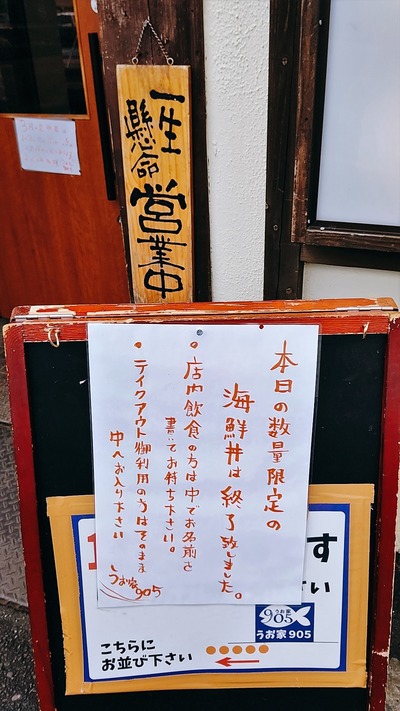 一生
懸命
営業中
本日の数量限定の
海鮮丼は終了致しました。
• 店内飲食の方は中でお名前を
書いてお待ち下さい。
• テイクアウト御利用の方はそのまま
中へお入り下さい
うお家905
1
す
さい
うお家
905
うお家905
こちらに
お並び下さい